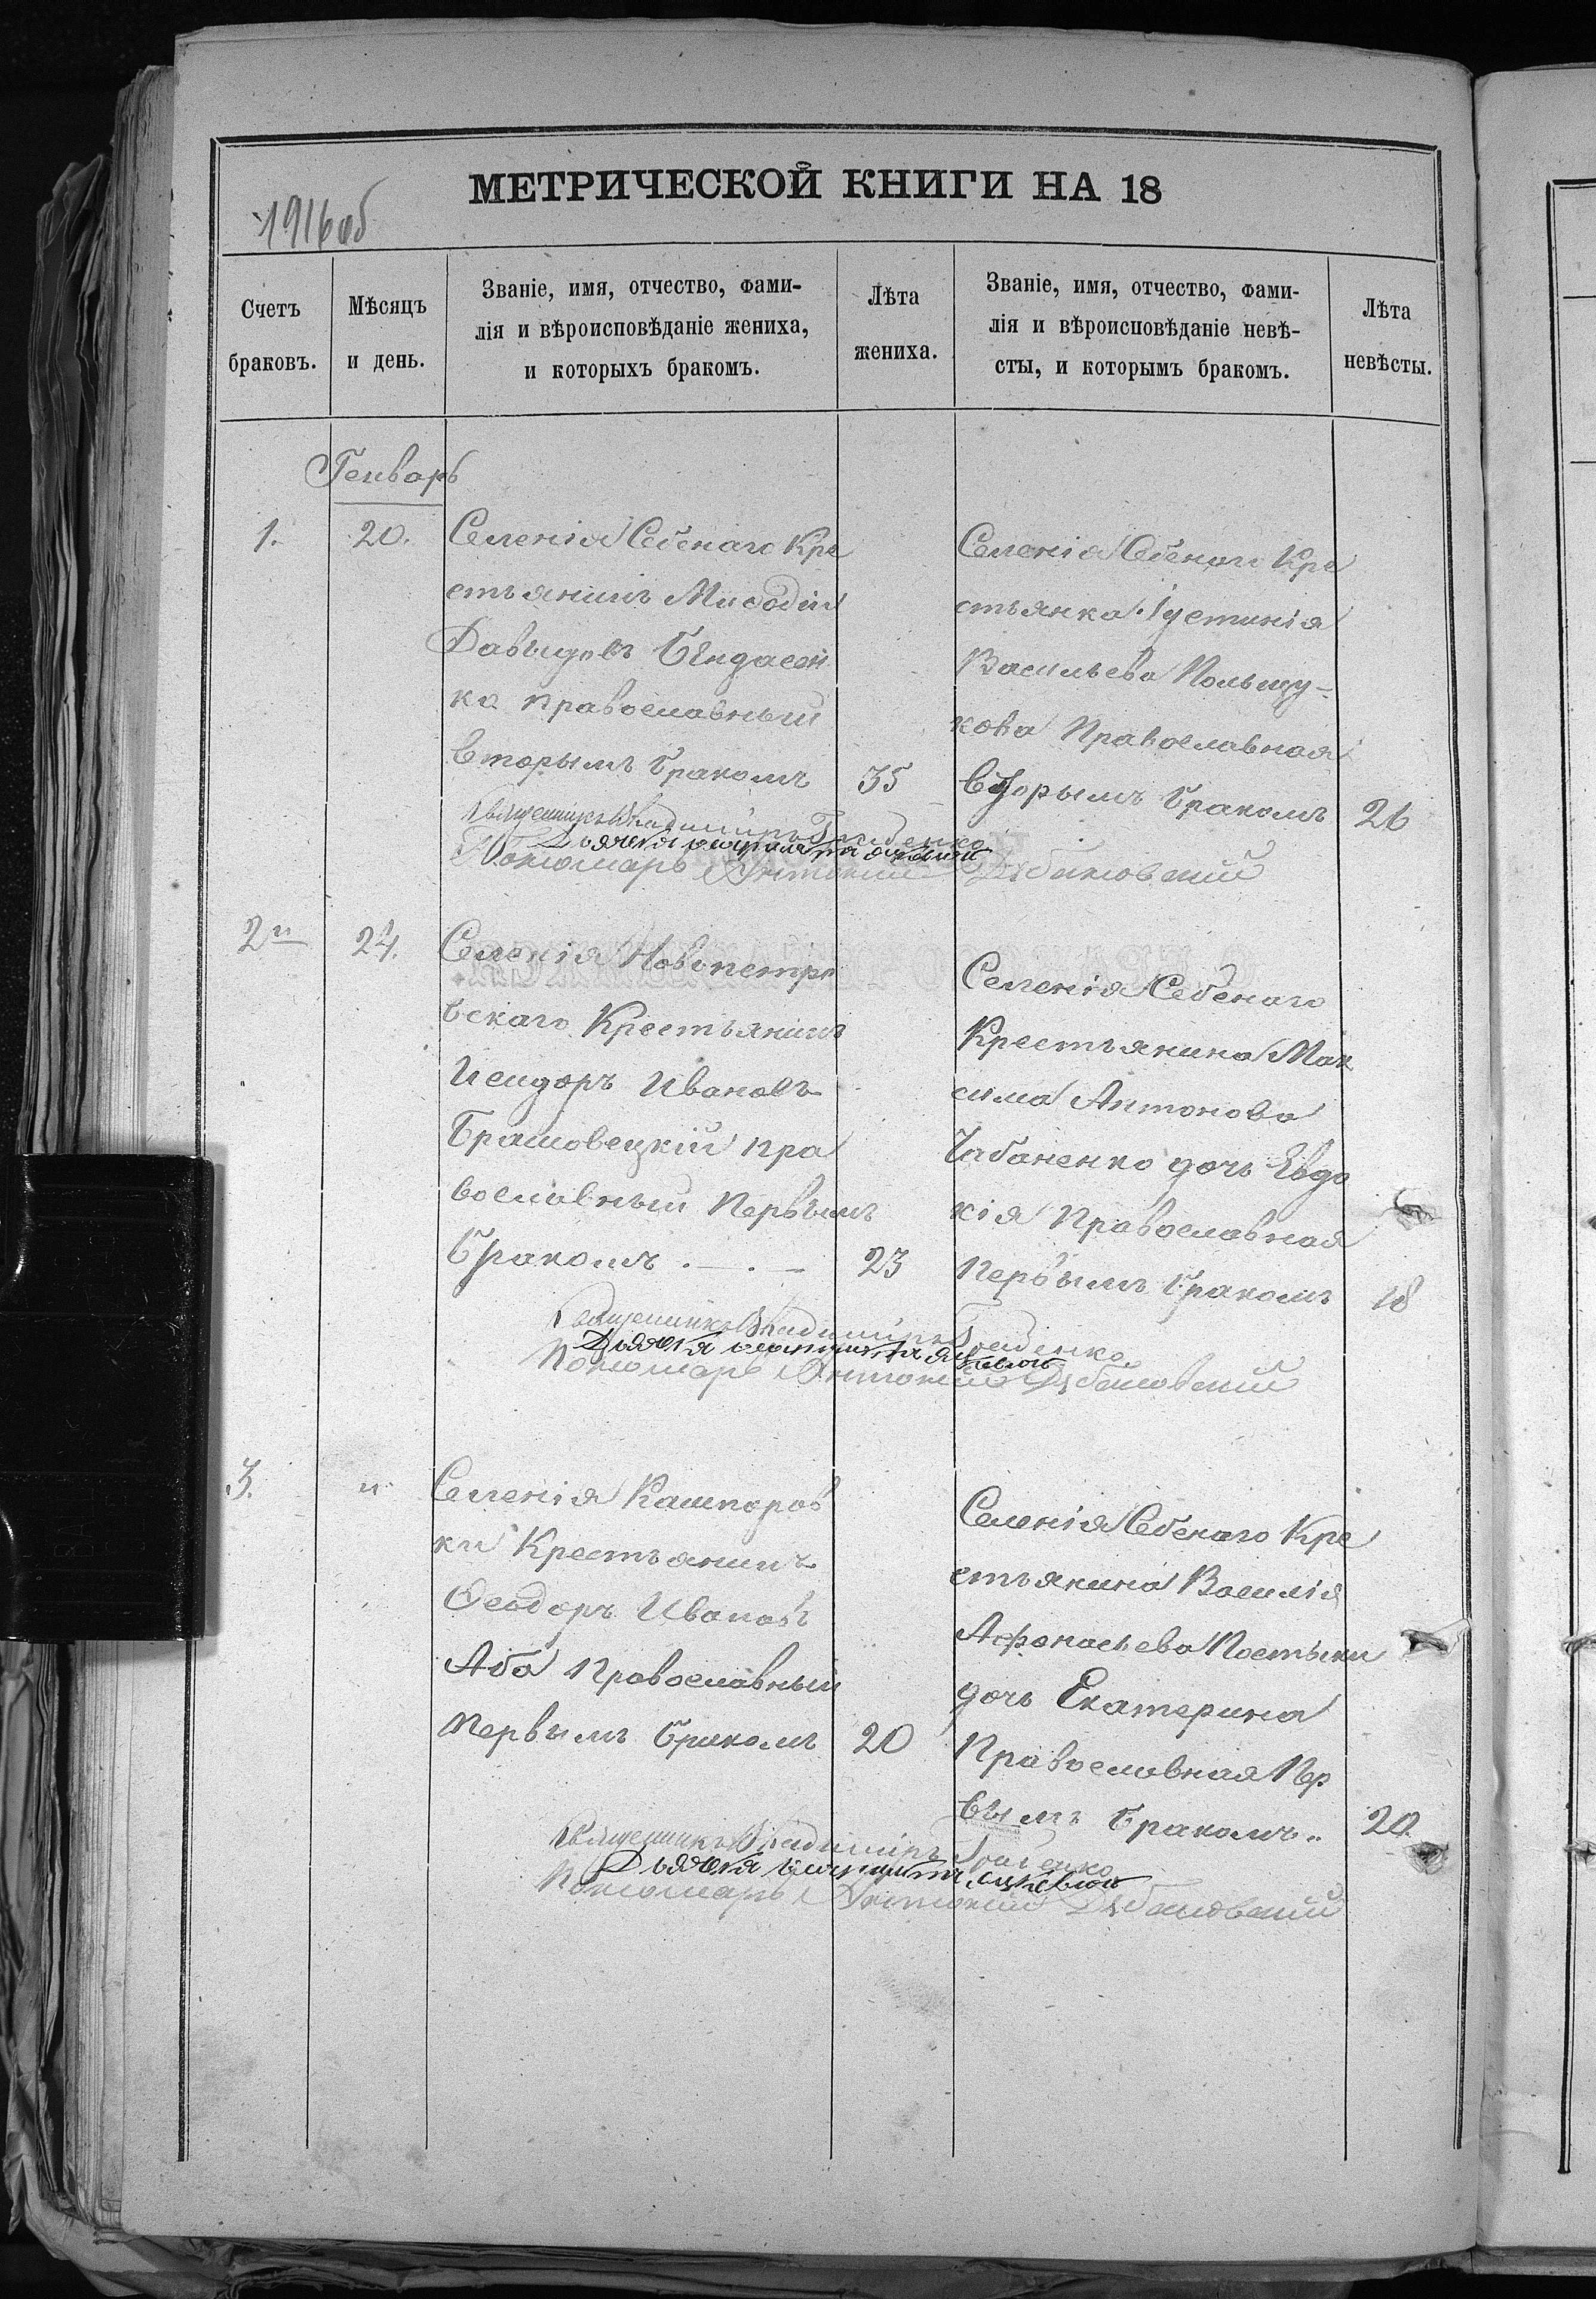 МЕТРИЧЕСКОЙ КНИГИ НА 18
1916об
Счетъ браковъ.
Мѣсяцъ и день.
Званіе, имя, отчество, фами-
лія и вѣроисповѣданіе жениха,
и которыхъ бракомъ.
Лѣта жениха.
Званіе, имя, отчество, фами-
лія и вѣроисповѣданіе невѣ-
сты, и которымъ бракомъ.
Лѣта невѣсты.
Генварь
1.
20.
Селенія Себенаго Кре
стьянинъ Мисодій
Давыдовъ
ко православный
вторымъ бракомъ
35
Селенія Себенаго Кре
стьянка Іустинія
Васильева Польщу-
кова Православная
вторымъ бракомъ
26
Священникъ Владиміръ
Дьячекъ
Пономарь Антоній
2
24.
Селенія Новопетро
вскаго Крестьянинъ
Исидоръ Ивановъ
Брашовецкій пра
вославный первымъ
бракомъ
23
Селенія Себенаго
Крестьянина Мак
сима Антонова
Чабаненко дочь Евдо
кія Православная
первымъ бракомъ
18
Священникъ Владиміръ
Дьячекъ
Пономарь Антоній
3.
"
Селенія Кашперов
ки Крестьянинъ
Ѳеодоръ Ивановъ
Аба Православный
первымъ бракомъ
20
Селенія Себенаго Кре
стьянина Василія
Афонасьева Постыки
дочь Екатерина
Православная Пер
вымъ бракомъ
20.
Священникъ Владиміръ
Дьячекъ
Пономарь Антоній